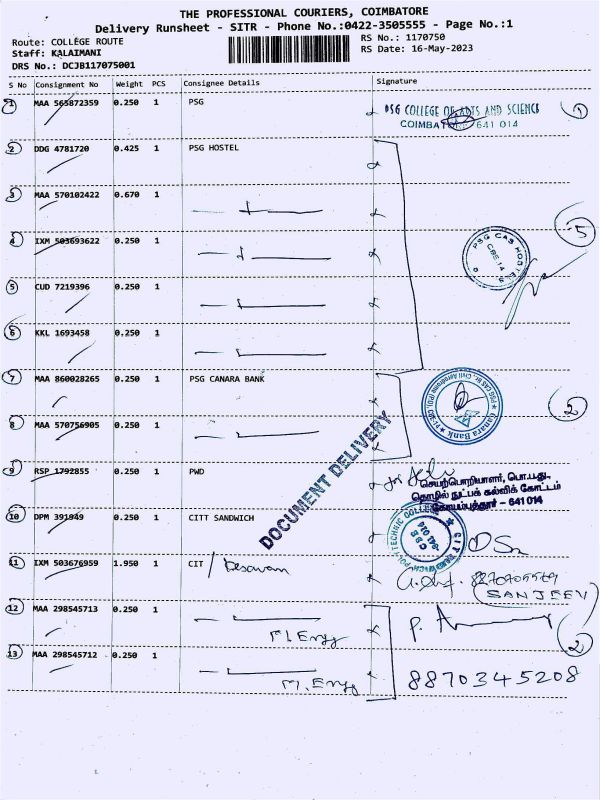 THE PROFESSIONAL COURIERS, COIMBATORE
Delivery Runsheet - SITR - Phone No.:0422-3505555 - Page No.:1
Route: COLLEGE ROUTE
Staff: KALAIMANI
DRS No.: DCJB117075001
RS No.: 1170750
RS Date: 16-May-2023
S No Consignment No Weight PCS Consignee Details Signature
1 MAA 563872359 0.250 1 PSG
PSG COLLEGE OF ARTS AND SCIENCE
COIMBATORE 641 014
1
2 DDG 4781720 0.425 1 PSG HOSTEL
3 MAA 570102422 0.670 1
4 IXM 503693622 0.250 1
PSG CAS HOSTELS
CBE-14
5
5 CUD 7219396 0.250 1
6 KKL 1693458 0.250 1
7 MAA 860028265 0.250 1 PSG CANARA BANK
Canara Bank
2
8 MAA 570756905 0.250 1
DOCUMENT DELIVERY
9 RSP 1792855 0.250 1 PWD
செயற்பொறியாளர், பொ.ப.து.,
தொழில் நுட்பக் கல்விக் கோட்டம்
கோயம்புத்தூர் - 641 014
10 DPM 391949 0.250 1 CITT SANDWICH
CIT SANDWICH POLYTECHNIC COLLEGE
CBE
641 014
11 IXM 503676959 1.950 1 CIT /
(SANJEEV)
12 MAA 298545713 0.250 1
M.Engg
2
13 MAA 298545712 0.250 1
M.Engg
8870345208